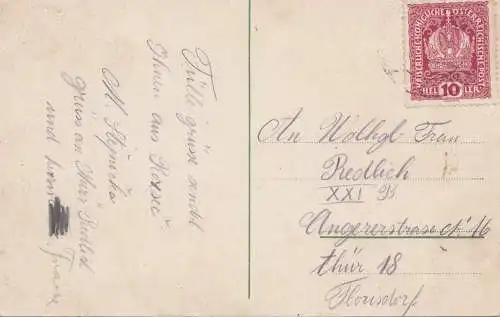 Fülle grüsse sendet
Ihnen aus
M.
gruss an Herr Redlich
und
Franz
KAISERLICHE KÖNIGLICHE ÖSTERREICHISCHE POST
HELLER 10
An Wolhgl Frau
Redlich
XXI B
Angererstrase N. 16
thür 18
Florisdorf